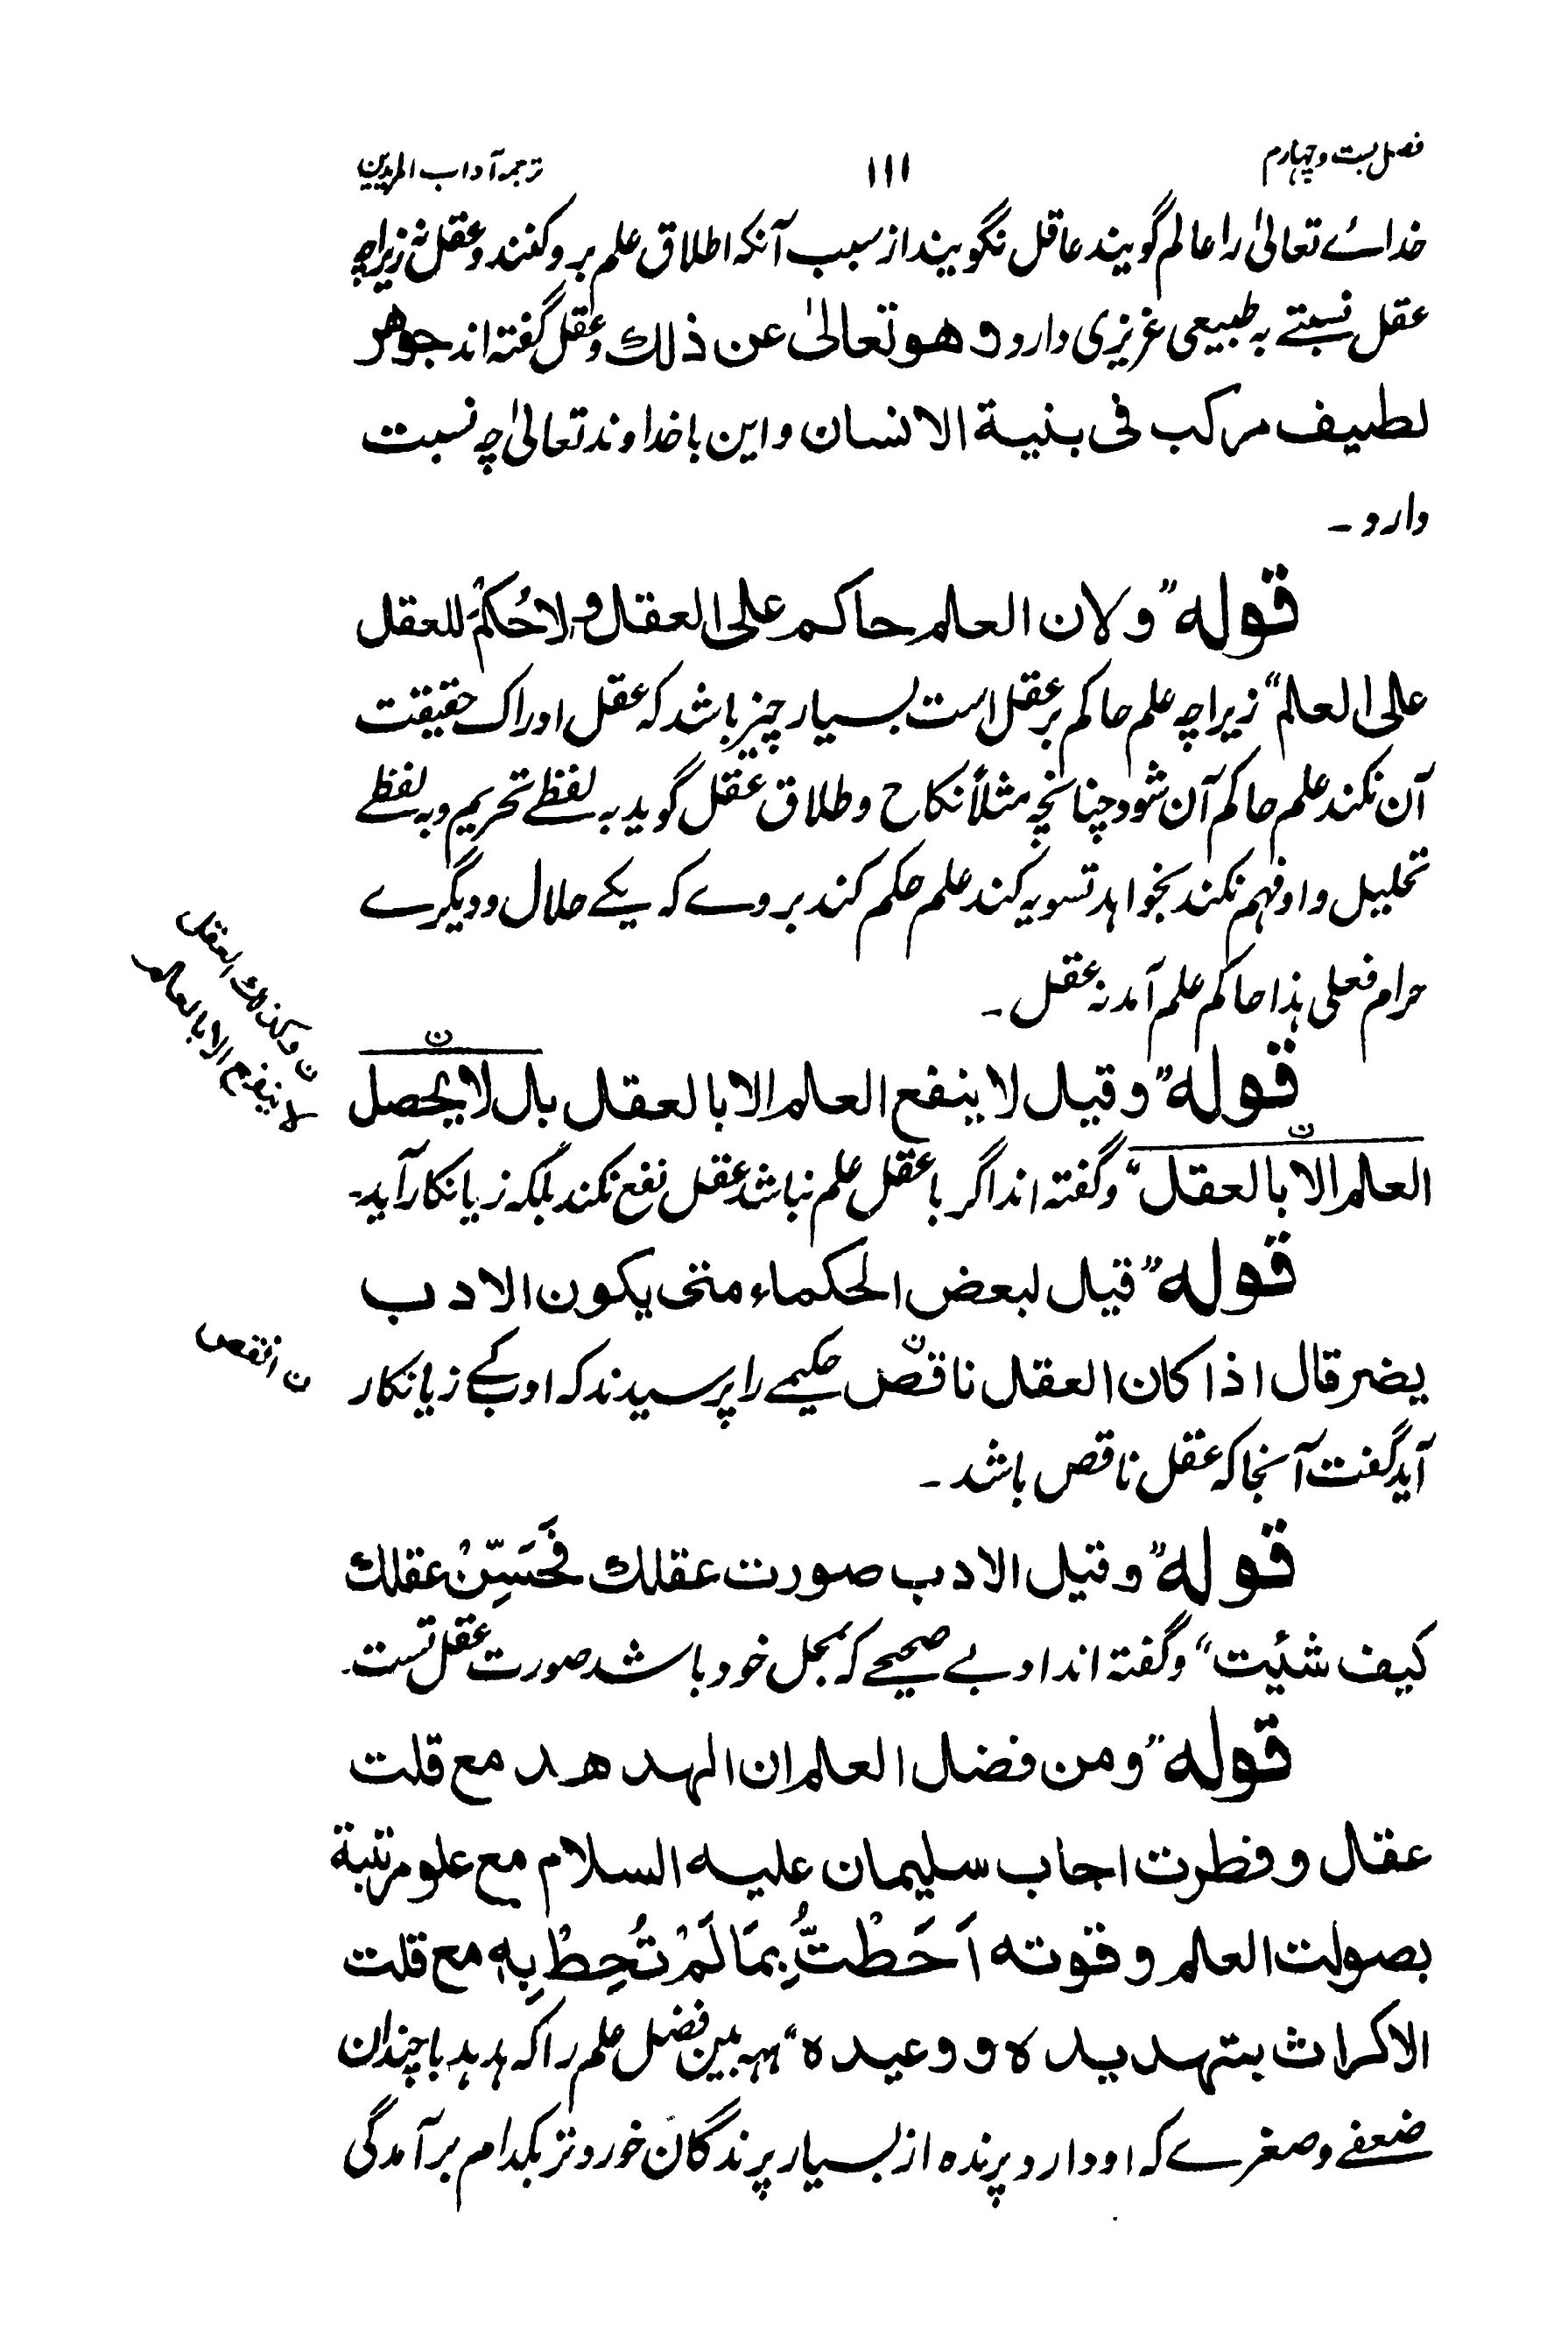 فصل بست و چہارم ۱۱۱ ترجمہ آداب المریدین
خدائے تعالیٰ را عالم گویند عاقل نگویند از سبب آنکہ اطلاق علم برو کنند و عقل نہ زیراچہ
عقل نسبتے بہ طبیعی غریزی دارد و هو تعالیٰ عن ذلك و عقل گفتہ اند جوهر
لطیف مرکب فی بنیة الانسان و این با خداوند تعالیٰ چہ نسبت
دارد ۔
قوله ”ولان العلم حاکم علی العقل ولا حُکمَ للعقل
علی العلم“ زیراچہ علم حاکم بر عقل است بسیار چیز باشد کہ عقل ادراک حقیقت
آن نکند علم حاکم آن شود چنانچہ مثلاً نکاح و طلاق عقل گوید بہ لفظے تحریم و بہ لفظے
تحلیل و او فہم نکند بخواہد تسویہ کند علم حکم کند بروے کہ یکے حلال و دیگرے
حرام فعلی ہذا حاکم علم آمد نہ عقل ۔
قوله ”وقیل لا ینفع العلم الا بالعقل بل لا یحصل
ن وکذلك العقل
لا ینفع الا بالعالم
العلم الا بالعقل“ و گفتہ اند اگر با عقل علم نباشد عقل نفع نکند بلکہ زیانکار آید۔
قوله ”قیل لبعض الحکماء متی یکون الادب
یضر قال اذا کان العقل ناقص حکیمے را پرسیدند کہ ادب کے زیانکار
ن انقص
آید گفت آنجا کہ عقل ناقص باشد ۔
قوله ”وقیل الادب صورت عقلك فَحَسِّنْ عقلك
کیف شئیت“ و گفتہ اند ادبے صحیحے کہ بمحل خود باشد صورت عقل تست۔
قوله ”ومن فضل العلم ان الهدهد مع قلت
عقل و فطرت اجاب سلیمان علیه السلام مع علو مرتبة
بصولت العلم وقوته اَحَطْتُّ بِمَا لَمْ تُحِطْ بِهٖ مع قلت
الاکراث بتهدیده و وعیده“ ہمہ بین فضل علم را کہ ہدہد با چندان
ضعفے و صغرے کہ او دارد پرندہ از بسیار پرندگان خورد تر بکدام برآمدگی